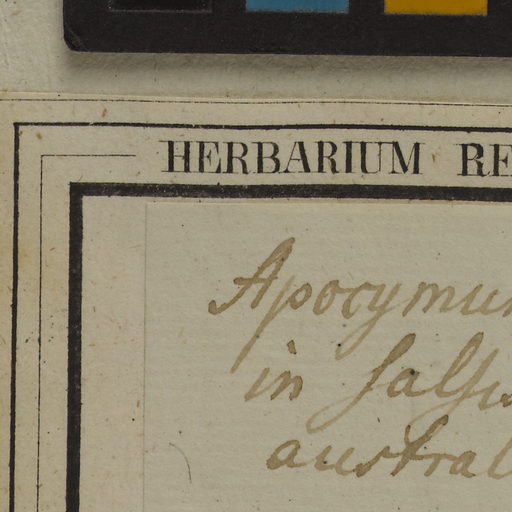 HERBARIUM RE
Apocymum
in salsis
austral